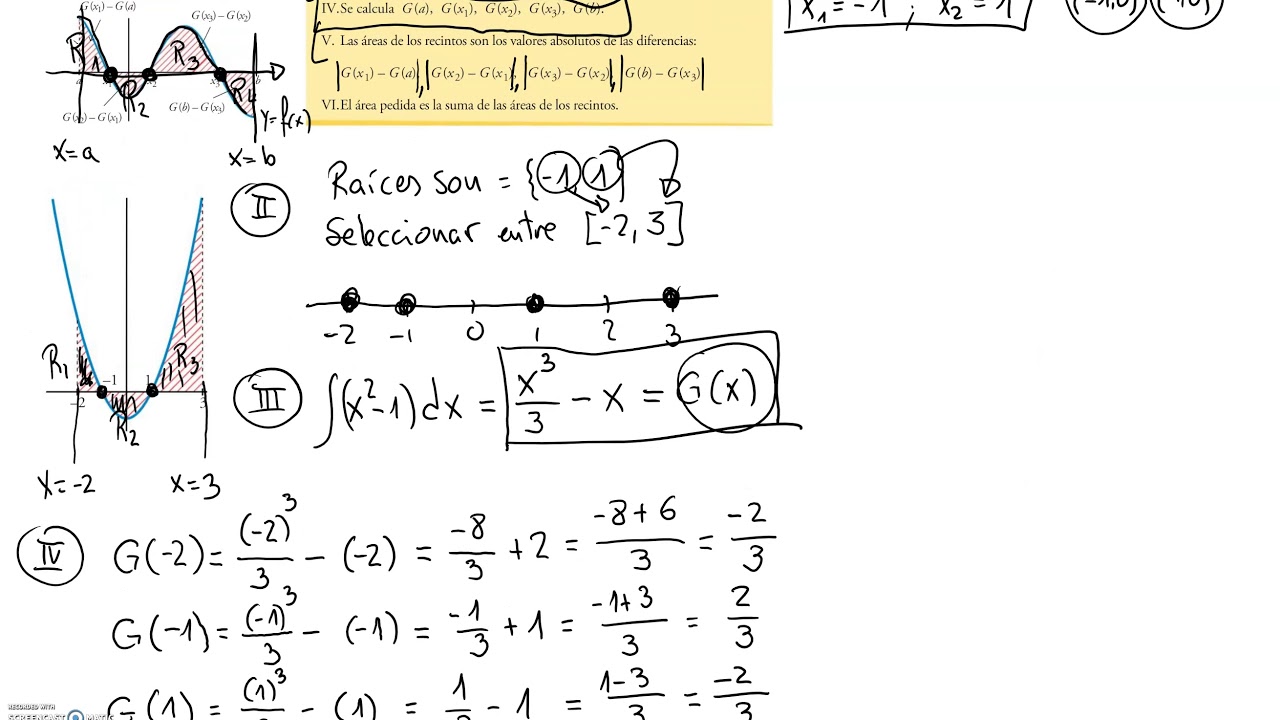 G(x₁)−G(a)
G(x₃)−G(x₂)
R₁
R₂
R₃
R₄
x₂
x₃
b
G(x₂)−G(x₁)
G(b)−G(x₃)
y=f(x)
x=a
x=b
IV. Se calcula G(a), G(x₁), G(x₂), G(x₃), G(b).
V. Las áreas de los recintos son los valores absolutos de las diferencias:
|G(x₁) − G(a)|, |G(x₂) − G(x₁)|, |G(x₃) − G(x₂)|, |G(b) − G(x₃)|
VI. El área pedida es la suma de las áreas de los recintos.
x₁ = −1 ; x₂ = 1
(−1,0)
II
Raíces son = {−1, 1}
Seleccionar entre [−2, 3]
−2 −1 0 1 2 3
R₁
R₂
R₃
−2
−1
1
3
x=−2
x=3
III
∫(x²−1)dx = x³/3 − x = G(x)
IV
G(−2) = (−2)³/3 − (−2) = −8/3 + 2 = −8+6/3 = −2/3
G(−1) = (−1)³/3 − (−1) = −1/3 + 1 = −1+3/3 = 2/3
G(1) = (1)³/3 − (1) = 1/3 − 1 = 1−3/3 = −2/3
RECORDED WITH
SCREENCAST MATIC